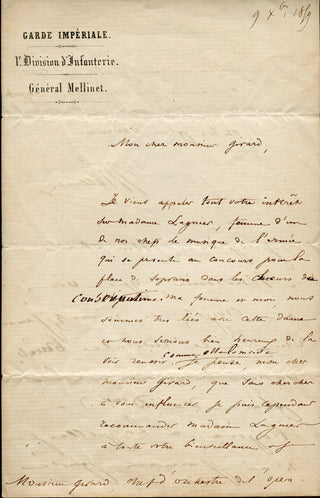 9 Xbre 1859
GARDE IMPÉRIALE.
1re Division d'Infanterie.
Général Mellinet.
Mon cher monsieur girard,
Je viens appeler tout votre intérêt
sur madame Lagnier, femme d'un
de nos chefs de musique de l'armée
qui se présente au concours pour la
place de soprano dans les chœurs du
Conservatoire. ma femme et moi nous
sommes très liés avec cette dame
et nous serions bien heureux de la
voir réussir comme elle le mérite
je pense, mon cher
monsieur Girard, que sans chercher
à vous influencer, je puis cependant
recommander madame Lagnier
à toute votre bienveillance
Monsieur girard chef d'orchestre de l'opéra.